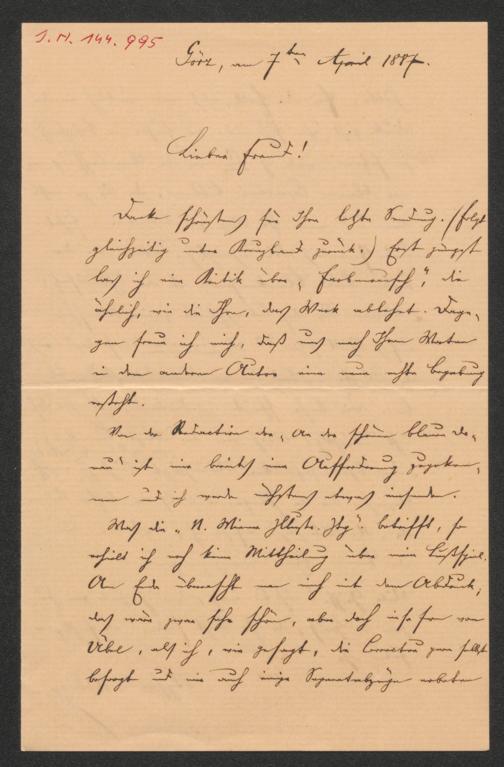 J.N. 144.995
Görz, am 7ten April 1887.
Lieber Freund!
Danke schönstens für Ihre letzte Sendung. (folgt
gleichzeitig unter Kreuzband zurück.) Erst jüngst
las ich eine Kritik über „ ", die
ähnlich, wie die Ihre, das Werk ablehnt. Dage-
gen freue ich mich, daß uns nach Ihren Worten
in dem anderen Autor eine neue echte Begabung
ersteht.
Von der Redaction der „An der schönen blauen Do-
nau" ist mir bereits eine Aufforderung zugekom-
men und ich werde nächstens etwas einsenden.
Was die „N. Wiener Illustr. Ztg." betrifft, so
erhielt ich noch keine Mittheilung über mein Lustspiel.
Am Ende überrascht man mich mit dem Abdruck;
das wäre zwar sehr schön, aber doch insofern von
Übel, als ich, wie gesagt, die Correctur gern selbst
besorgt und mir auch einige Separatabzüge erbeten